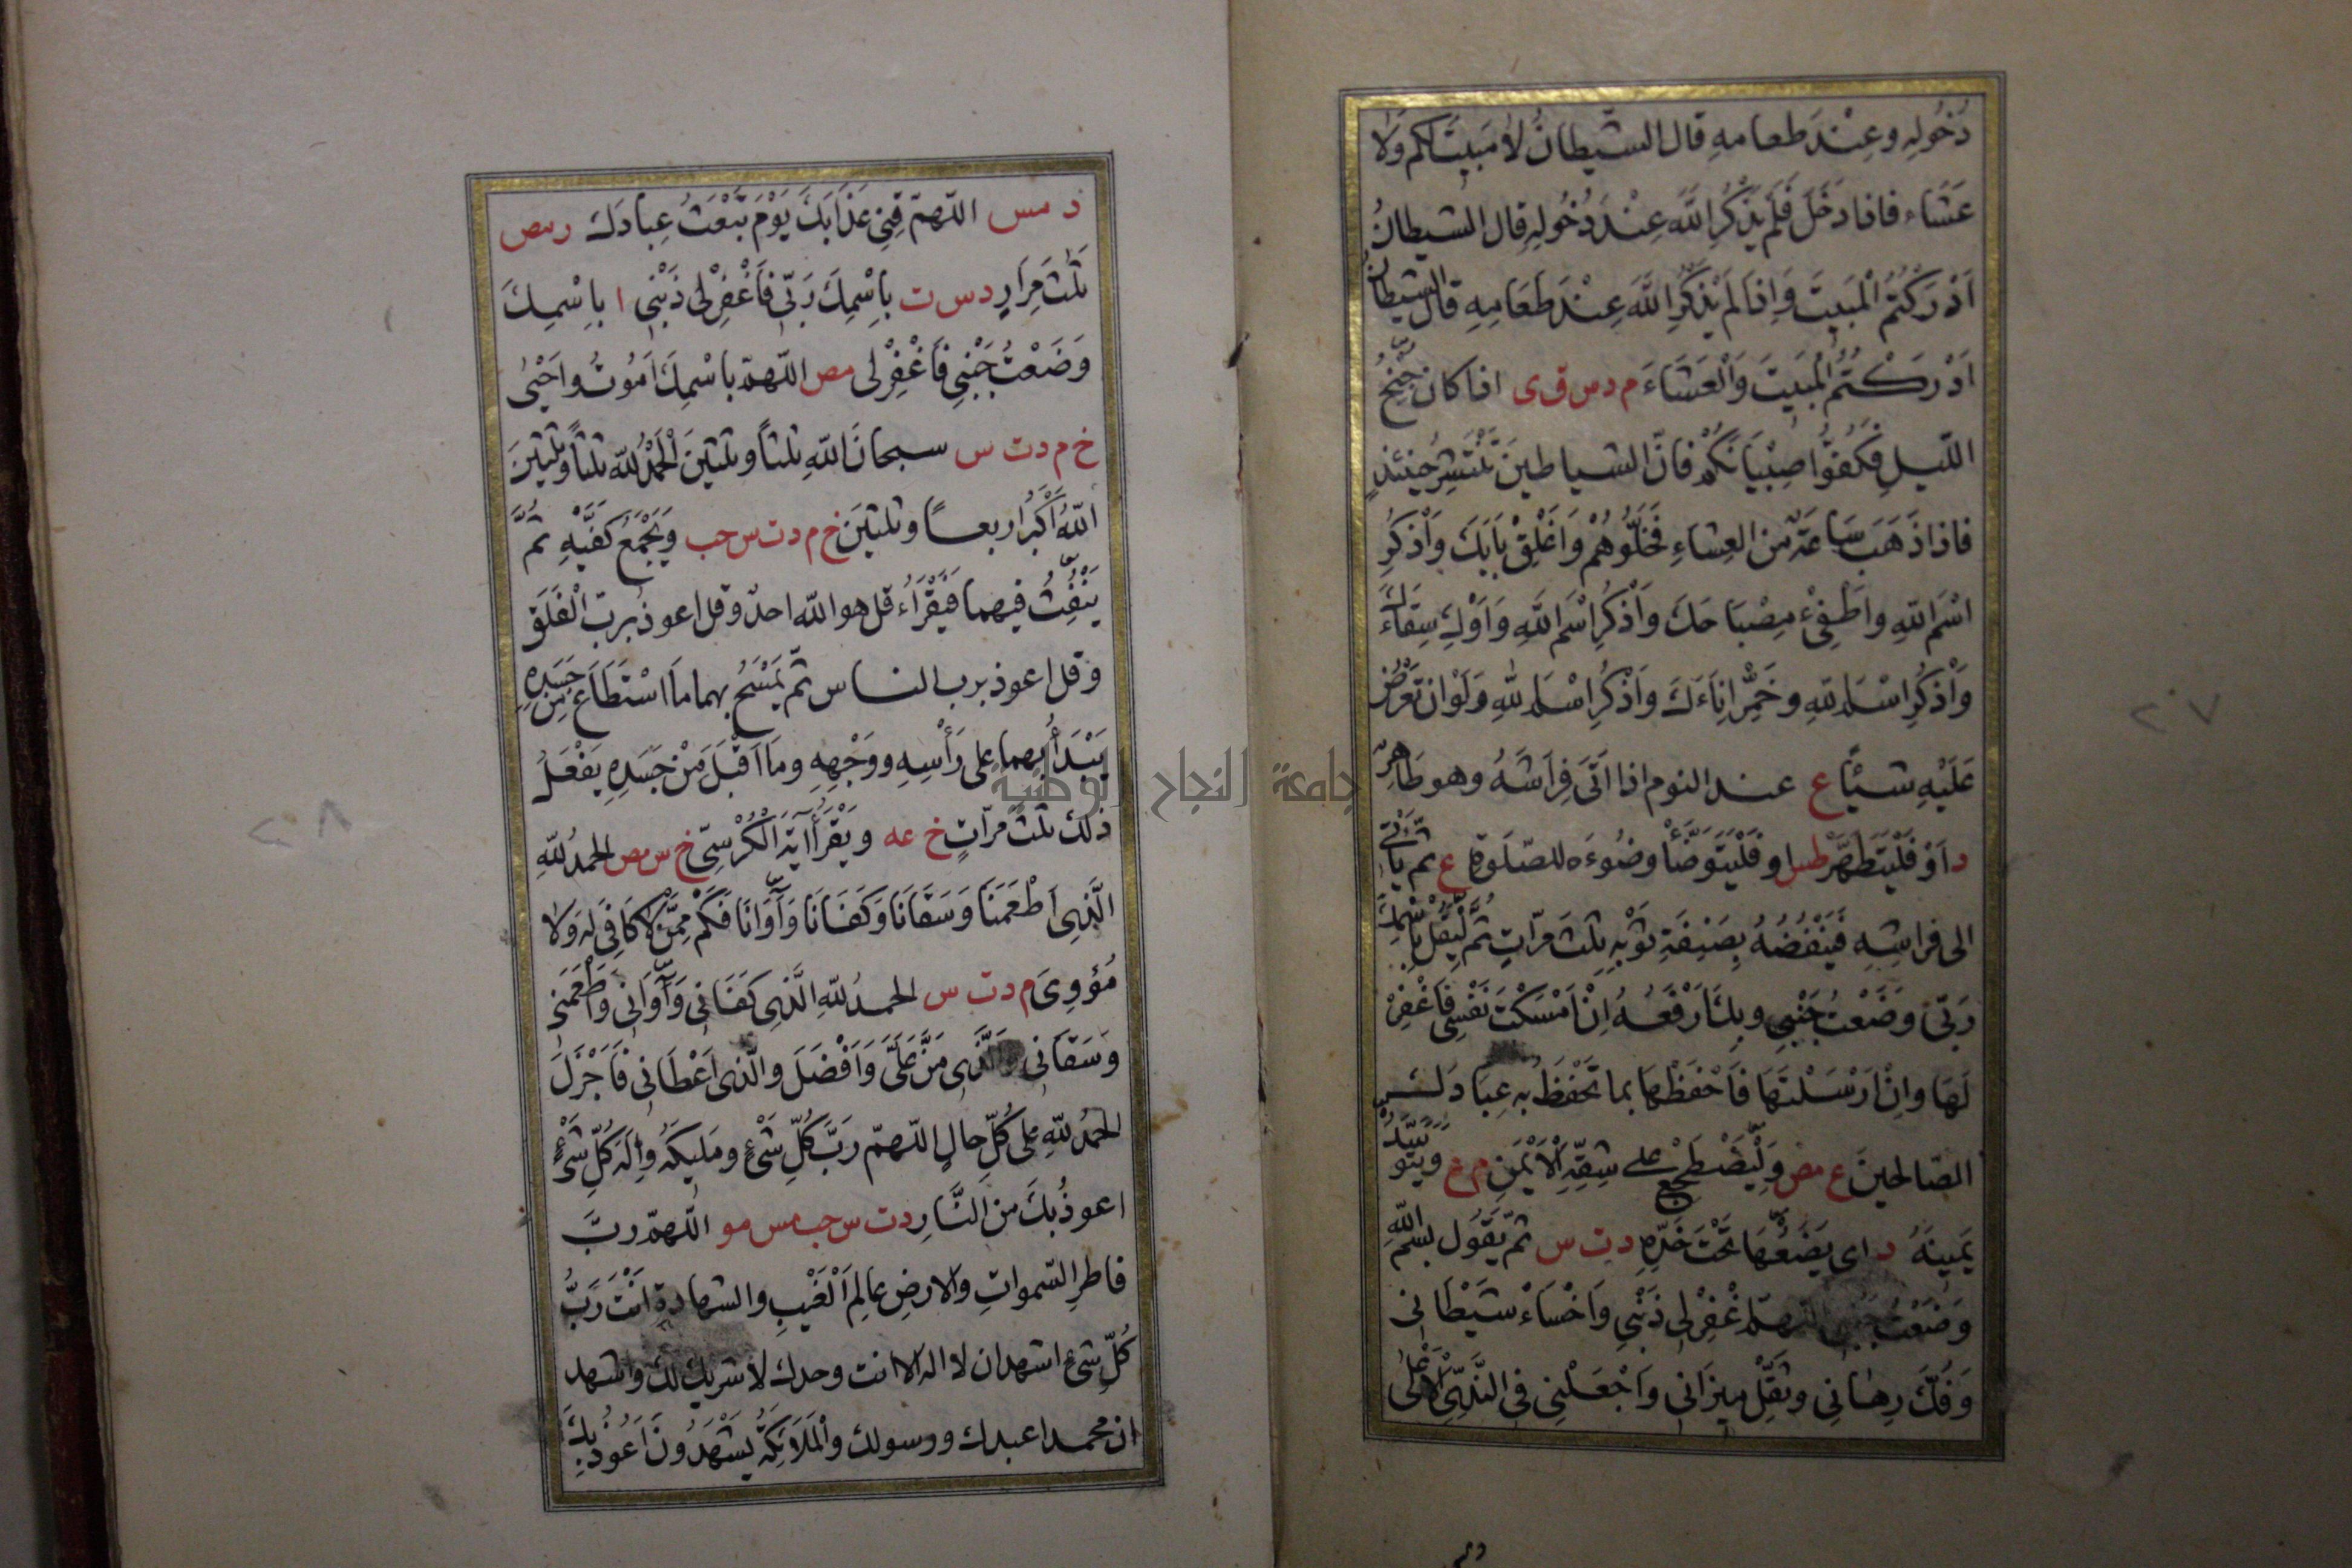 دُخُولِهِ وعِنْدَ طعامهِ قال الشّيطانُ لا مَبيتَ لكم وَلا
عَشَاء فاذا دَخَلَ فَلَم يَذْكُرِ اللَّهَ عِنْدَ دُخُولِهِ قال الشيطانُ
اَدْرَكْتُمُ الْمَبيتَ وَاِذا لَمْ يَذْكُرِ اللَّهَ عِنْدَ طَعَامِهِ قال الشيطانُ
اَدْرَكْتُمُ الْمَبيتَ وَالْعَشَاءَ م د س ق ى اذا كان جِنْحُ
اللّيلِ فَكُفُّوا صِبْيَانَكُمْ فانّ الشياطينَ تَنْتَشِرُ حِينَئذٍ
فاذا ذَهَبَ سَاعَةٌ مّن العِشاءِ فَخَلُّوهُمْ وَاَغْلِقْ بَابَكَ وَاْذكُرِ
اسْمَ اللهِ واَطْفِئْ مِصْبَاحَكَ وَاْذكُرِ اسْمَ اللَّهِ وَاَوْكِ سِقَاءَكَ
وَاْذكُرِ اسْمَ اللهِ وخَمِّرْ اِنَاءَكَ وَاْذكُرِ اسْمَ اللهِ وَلَوْ ان تَعْرُضَ
عَلَيْهِ شيْئًا ع عند النوم اذا اَتَى فِرَاشَهُ وهو طَاهِرٌ
د اَوْ فَلْيَتَطَهَّرْ طس او فَلْيَتَوَضَّأْ وضُوءَه للصّلوة ع ثم يَأْتى
الى فراشِهِ فَيَنْفُضُهُ بِصَنِفَةِ ثَوْبِهِ ثلثَ مرّاتٍ ثُمَّ لْيَقُلْ بِاسْمِكَ
رَبّى وَضَعْتُ جَنْبِى وبِكَ اَرْفَعُهُ اِنْ اَمْسَكْتَ نَفْسِى فَاغْفِرْ
لَهَا وانْ اَرْسَلْتَهَا فَاحْفَظْهَا بما تَحْفَظُ به عِبَادَكَ
الصّالحينَ ع مص وَلْيَضْطَجِعْ على شِقِّهِ الْاَيْمَنِ م ع وَيَتَوَسَّدُ
يَمِينَهُ د اى يَضَعُهَا تَحْتَ خَدِّهِ د ت س ثمّ يَقُول بسم اللهِ
وَضَعْتُ جَنْبِى اللّهمّ اغْفِرْ لى ذَنْبِى وَاخْسَأْ شَيْطَانِى
وَفُكَّ رِهَانِى وثَقِّلْ مِيزَانى وَاجْعَلْنِى فى النَّدِىِّ الْاَعْلَى
د مس اللّهمّ قِنِى عَذَابَكَ يَوْمَ تَبْعَثُ عِبادَكَ ر مص
ثَلثَ مِرَارٍ د س ت بِاسْمِكَ رَبّى فَاغْفِرْ لى ذَنْبِى ا بِاسْمِكَ
وَضَعْتُ جَنْبِى فَاغْفِرْ لى مص اللّهمّ بِاسْمِكَ اَمُوتُ واَحْيٰى
خ م د ت س سبحانَ اللهِ ثلثًا وثلثينَ الْحَمْدُ لِلّه ثلثًا وثلثينَ
اللهُ اَكْبَرُ اربعًا وثلثينَ خ م د ت س حب وَيَجْمَعُ كَفَّيْهِ ثُمَّ
يَنْفُثُ فيهما فَيَقْرَاءُ قل هو الله احدٌ وقل اعوذ بربّ الْفَلَق
وقل اعوذ برب الناس ثمّ يَمْسَحُ بهما مَا اسْتَطَاعَ مِن جَسَدِهِ
يَبْدَأُ بِهِما عَلى رَأْسِهِ ووَجْهِهِ ومَا اَقْبَلَ مِنْ جَسَدِهِ يَفْعَلُ
ذلك ثلثَ مرّاتٍ خ عه ويَقْرَأُ آيَةَ الْكُرْسِىِّ خ س مص الحمدُ لِلّهِ
الَّذِى اَطْعَمَنَا وَسَقَانَا وَكَفَانَا وَآوَانَا فَكَمْ مِمَّنْ لا كَافِىَ لَه وَلا
مُؤْوِىَ م د ت س الحمدُ لِلّهِ الَّذِى كَفَانى وَآوَانِى وَاَطْعَمَنى
وَسَقَانى وَالَّذى مَنَّ عَلَىَّ وَاَفْضَلَ والّذى اَعْطَانى فَاَجْزَلَ
الحَمْدُ لِلّهِ على كُلِّ حالٍ اللّهمّ رَبَّ كُلِّ شَىْءٍ ومَليكَهُ واِلٰهَ كُلِّ شَىْءٍ
اعوذُ بِكَ من النَّارِ د ت س حب مس مو اللّهمّ ربَّ
فاطرِ السّمواتِ والارضِ عالِمَ الْغَيْبِ والشهادةِ اَنْتَ رَبُّ
كُلِّ شئ اشهد ان لا اله الا انت وحدك لا شريك لك واشهد
ان محمدا عبدك ورسولك والْمَلَائِكَةُ يَشْهَدُونَ اَعُوذُ بِكَ
٢٠٧
٢٠٨
جامعة النجاح الوطنية